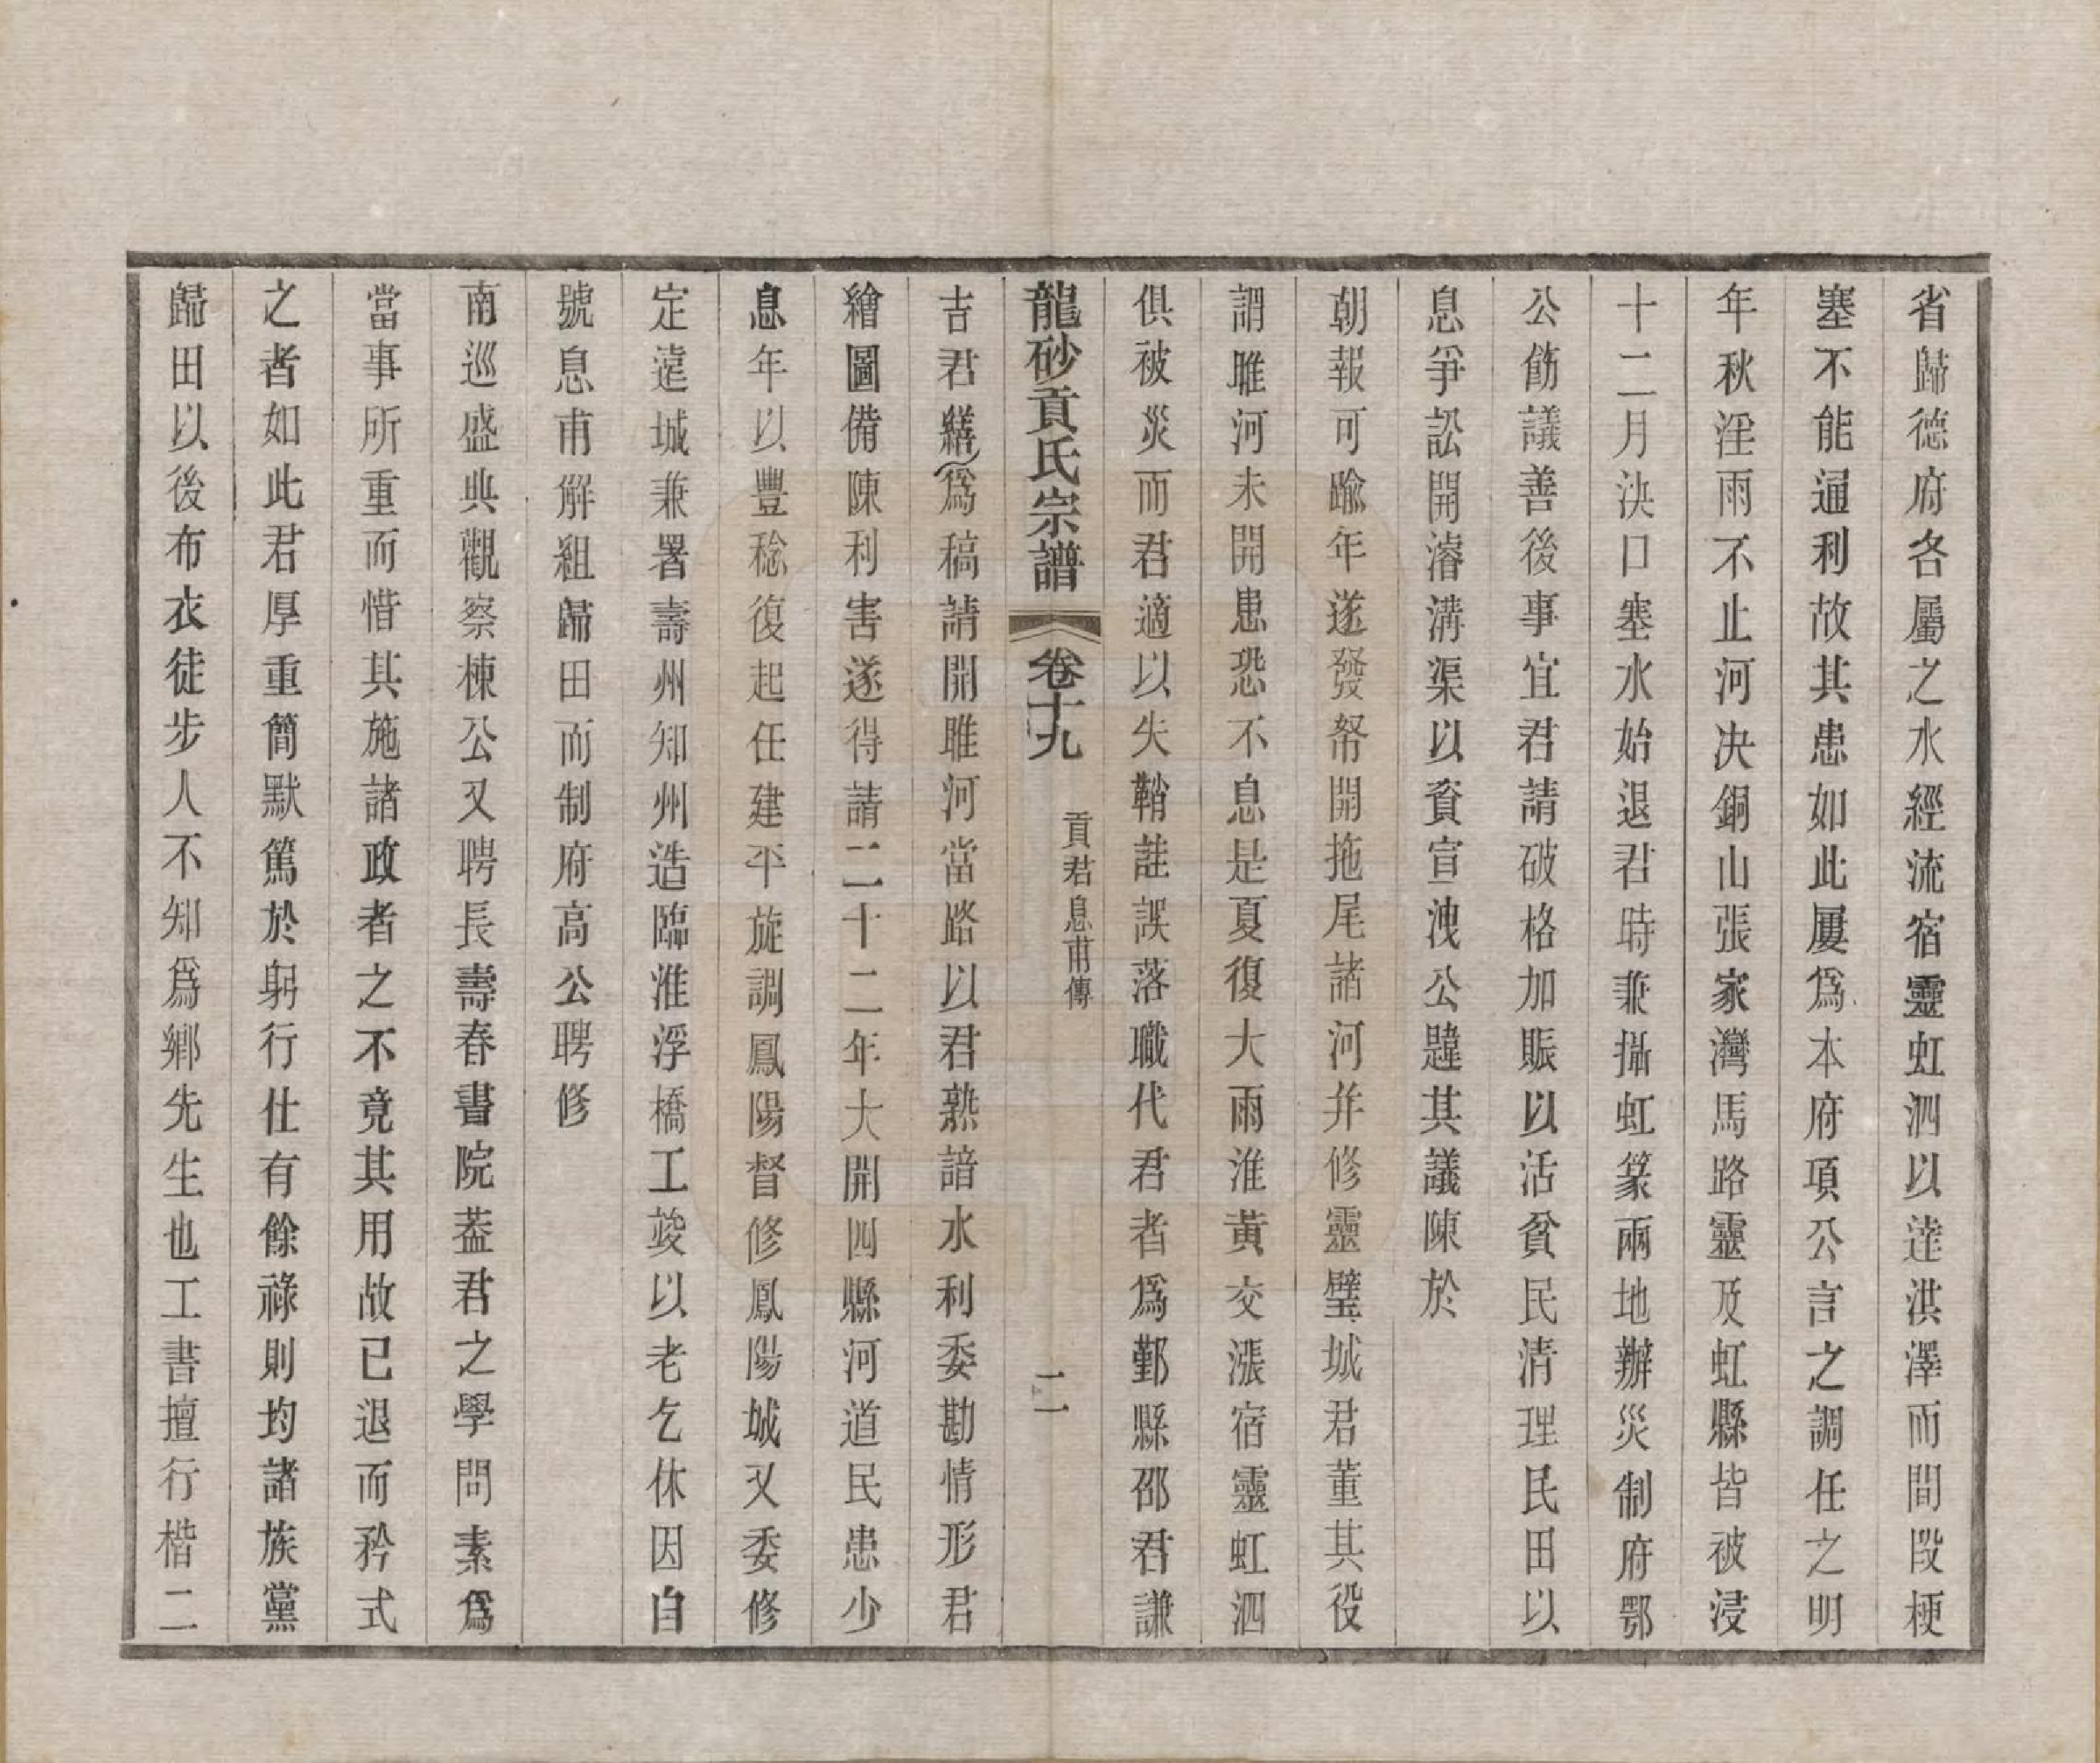 省歸德府各屬之水經流宿靈虹泗以達洪澤而間段梗
塞不能通利故其患如此屢爲本府項公言之調任之明
年秋淫雨不止河決銅山張家灣馬路靈及虹縣皆被浸
十二月決口塞水始退君時兼攝虹篆兩地辦災制府鄂
公飭議善後事宜君請破格加賑以活貧民清理民田以
息爭訟開濬溝渠以資宣洩公韙其議陳於
朝報可踰年遂發帑開拖尾諸河并修靈璧城君董其役
謂睢河未開患恐不息是夏復大雨淮黃交漲宿靈虹泗
俱被災而君適以失鞘詿誤落職代君者爲鄞縣邵君謙
龍砂貢氏宗譜 卷十九 貢君息甫傳 二
吉君繕爲稿請開睢河當路以君熟諳水利委勘情形君
繪圖備陳利害遂得請二十二年大開四縣河道民患少
息年以豐稔復起任建平旋調鳳陽督修鳳陽城又委修
定遠城兼署壽州知州造臨淮浮橋工竣以老乞休因自
號息甫解組歸田而制府高公聘修
南巡盛典觀察棟公又聘長壽春書院葢君之學問素爲
當事所重而惜其施諸政者之不竟其用故已退而矜式
之者如此君厚重簡默篤於躬行仕有餘祿則均諸族黨
歸田以後布衣徒步人不知爲鄉先生也工書擅行楷二